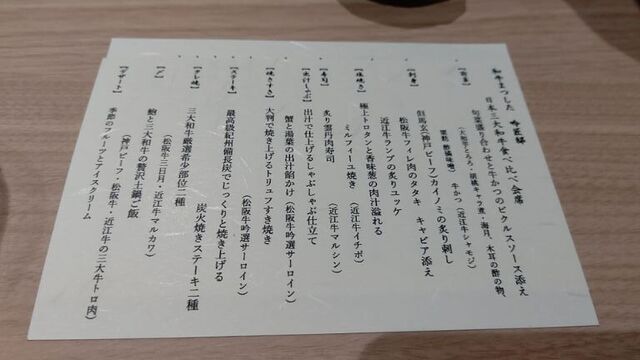 和牛まつした 吟匠邸
日本三大和牛食べ比べ会席
【前菜】
旬菜盛り合わせと牛かつのピクルスソース添え
(大和芋とろろ・胡桃キャラ煮・海月、木耳の酢の物、
牛かつ(近江牛シャモジ)
【お刺身】
但馬玄(神戸ビーフ)カイノミの炙り刺し
松阪牛フィレ肉のタタキ キャビア添え
近江牛ランプの炙りユッケ
【塩焼き】
極上トロタンと香味葱の肉汁溢れる
ミルフィーユ焼き (近江牛イチボ)
【寿司】
炙り雲丹肉寿司 (近江牛マルシン)
【出汁しゃぶ】
出汁で仕上げるしゃぶしゃぶ仕立て
蟹と湯葉の出汁餡かけ(松阪牛吟選サーロイン)
【焼きすき】
大判で焼き上げるトリュフすき焼き
(松阪牛吟選サーロイン)
【ステーキ】
最高級紀州備長炭でじっくりと焼き上げる
炭火焼きステーキ二種
【タレ焼】
三大和牛厳選希少部位二種
(松阪牛三日月・近江牛マルカワ)
【〆】
鮑と三大和牛の贅沢土鍋ご飯
(神戸ビーフ・松阪牛・近江牛の三大牛トロ肉)
【デザート】
季節のフルーツとアイスクリーム